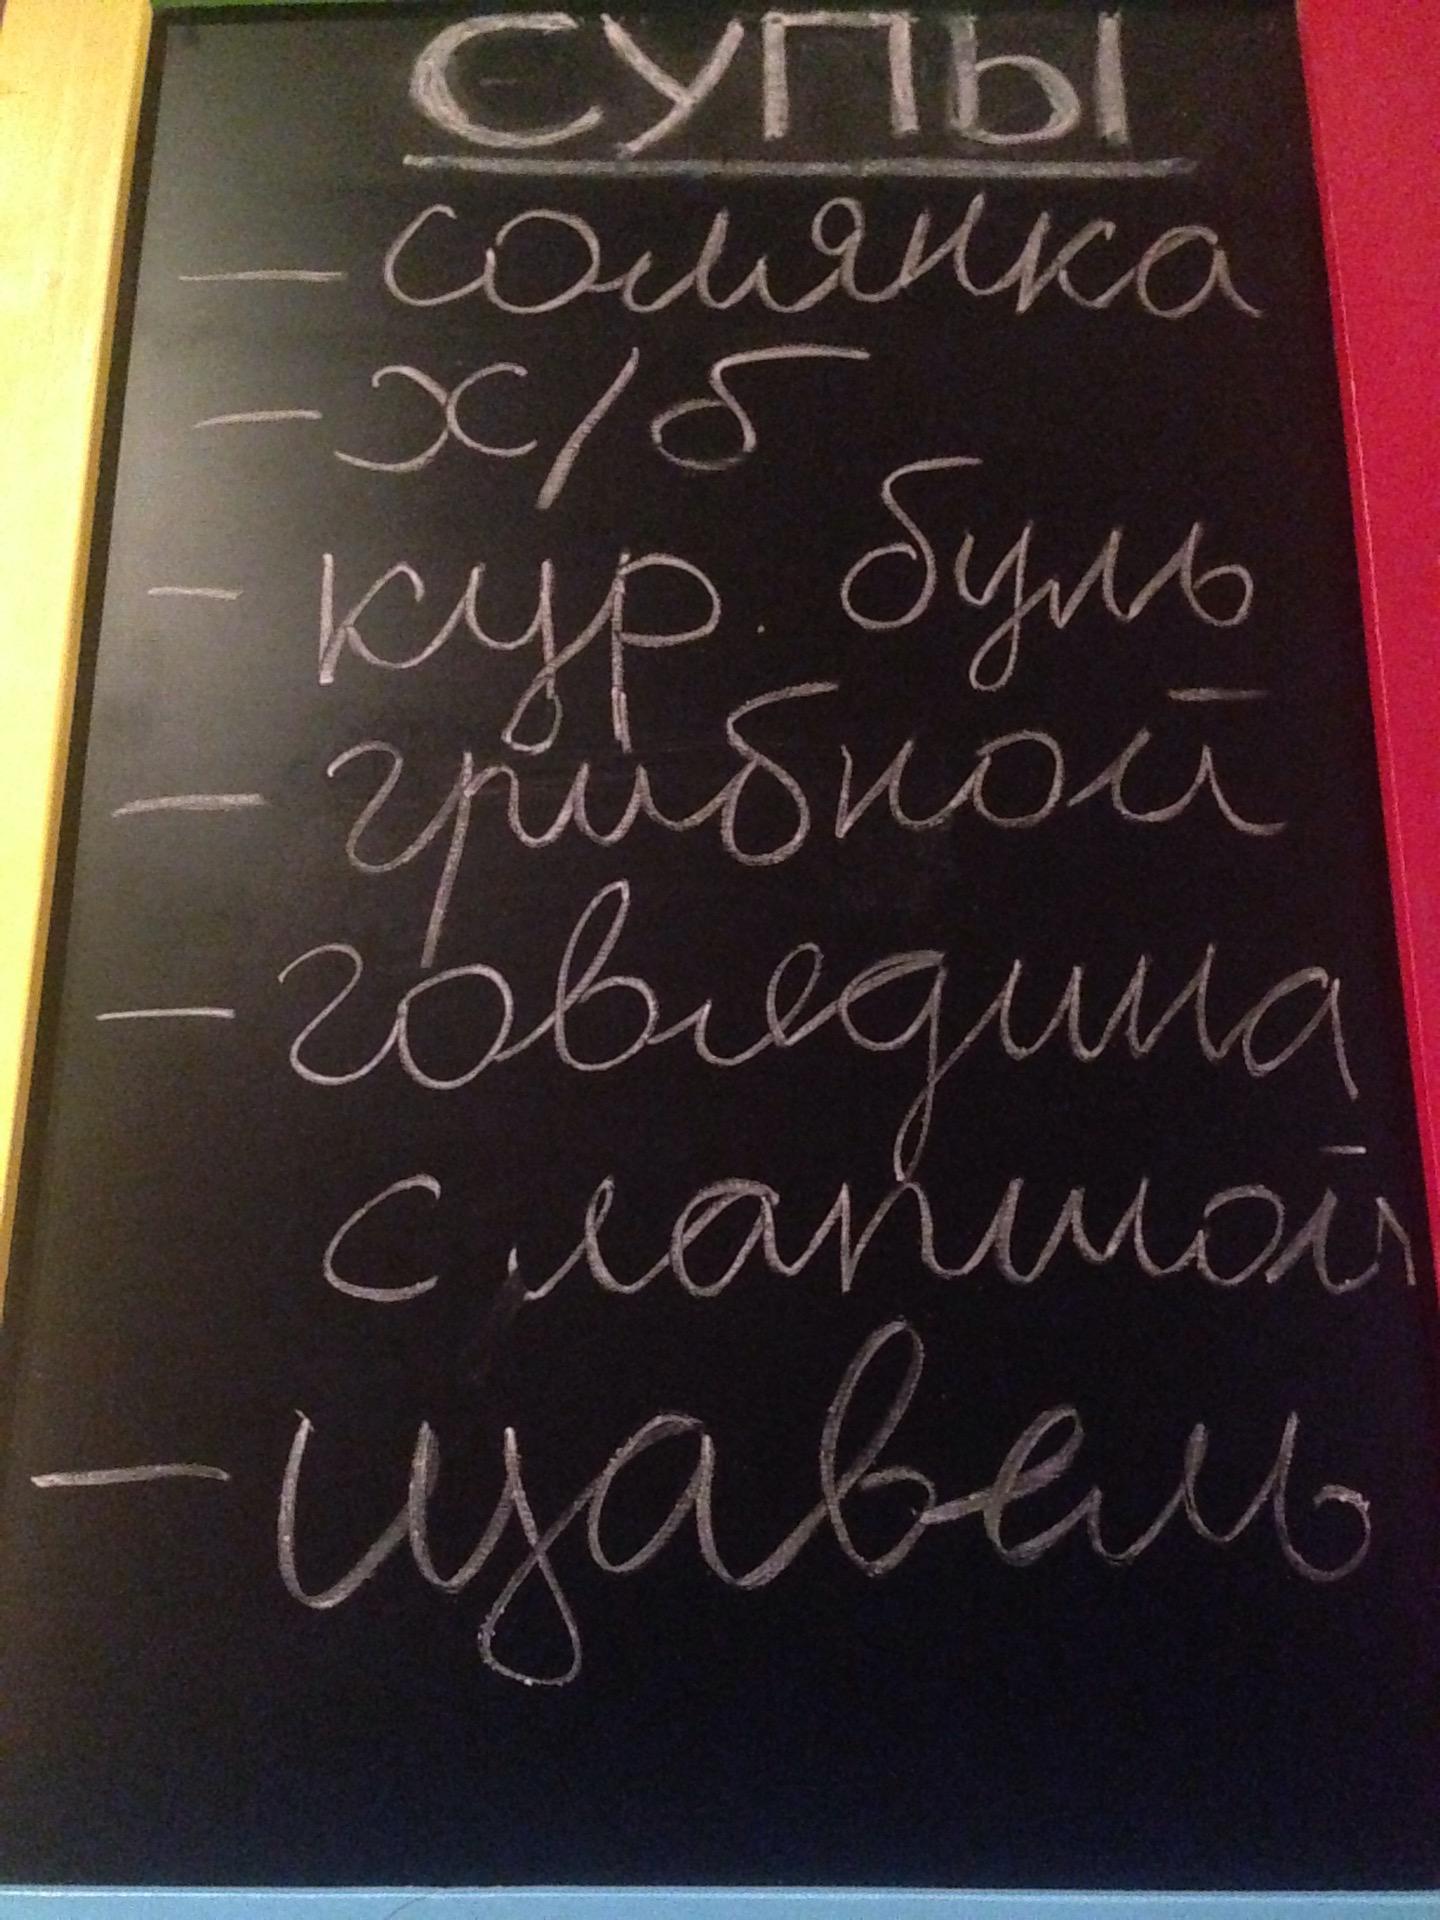 СУПЫ
- солянка
- х/б
- кур. буль
- грибной
- говядина
с лапшой
- щавель